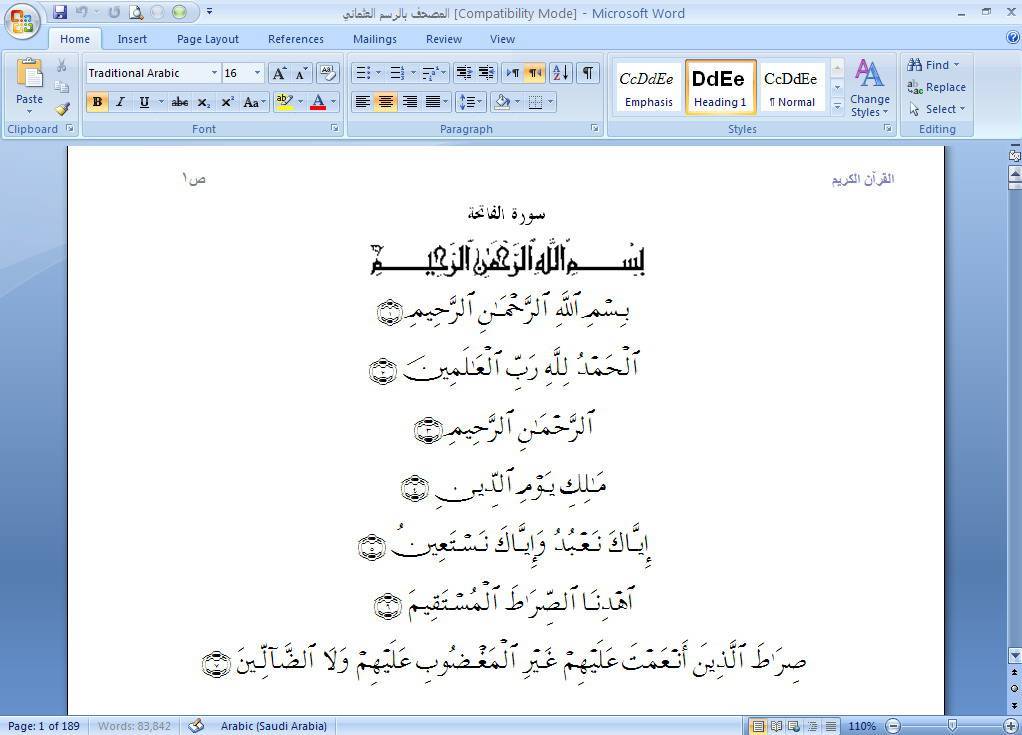 المصحف بالرسم العثماني [Compatibility Mode] - Microsoft Word
Home Insert Page Layout References Mailings Review View
Traditional Arabic 16
Paste
B I U abc X₂ X² Aa ab A
CcDdEe DdEe CcDdEe
Emphasis Heading 1 ¶ Normal
Change Styles
Find
Replace
Select
Clipboard Font Paragraph Styles Editing
القرآن الكريم ص١
سورة الفاتحة
بِسْمِ ٱللَّهِ ٱلرَّحْمَٰنِ ٱلرَّحِيمِ
بِسْمِ ٱللَّهِ ٱلرَّحْمَٰنِ ٱلرَّحِيمِ ١
ٱلْحَمْدُ لِلَّهِ رَبِّ ٱلْعَٰلَمِينَ ٢
ٱلرَّحْمَٰنِ ٱلرَّحِيمِ ٣
مَٰلِكِ يَوْمِ ٱلدِّينِ ٤
إِيَّاكَ نَعْبُدُ وَإِيَّاكَ نَسْتَعِينُ ٥
ٱهْدِنَا ٱلصِّرَٰطَ ٱلْمُسْتَقِيمَ ٦
صِرَٰطَ ٱلَّذِينَ أَنْعَمْتَ عَلَيْهِمْ غَيْرِ ٱلْمَغْضُوبِ عَلَيْهِمْ وَلَا ٱلضَّآلِّينَ ٧
Page: 1 of 189 Words: 83,842 Arabic (Saudi Arabia) 110%